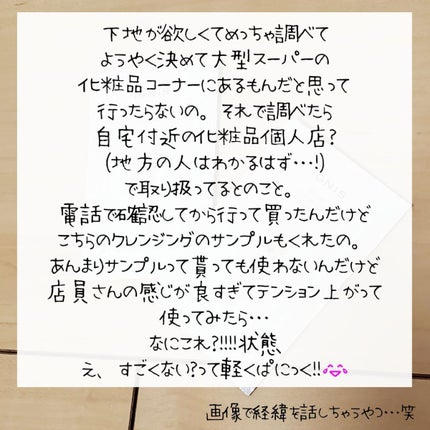 下地が欲しくてめっちゃ調べて
ようやく決めて大型スーパーの
化粧品コーナーにあるもんだと思って
行ったらないの。それで調べたら
自宅付近の化粧品個人店?
(地方の人はわかるはず…!)
で取り扱ってるとのこと。
電話で確認してから行って買ったんだけど
こちらのクレンジングのサンプルもくれたの。
あんまりサンプルって貰っても使わないんだけど
店員さんの感じが良すぎてテンション上がって
使ってみたら…
なにこれ?!!!!状態
え、すごくない?って軽くぱにっく!!😂
画像で経緯を話しちゃうやつ…笑